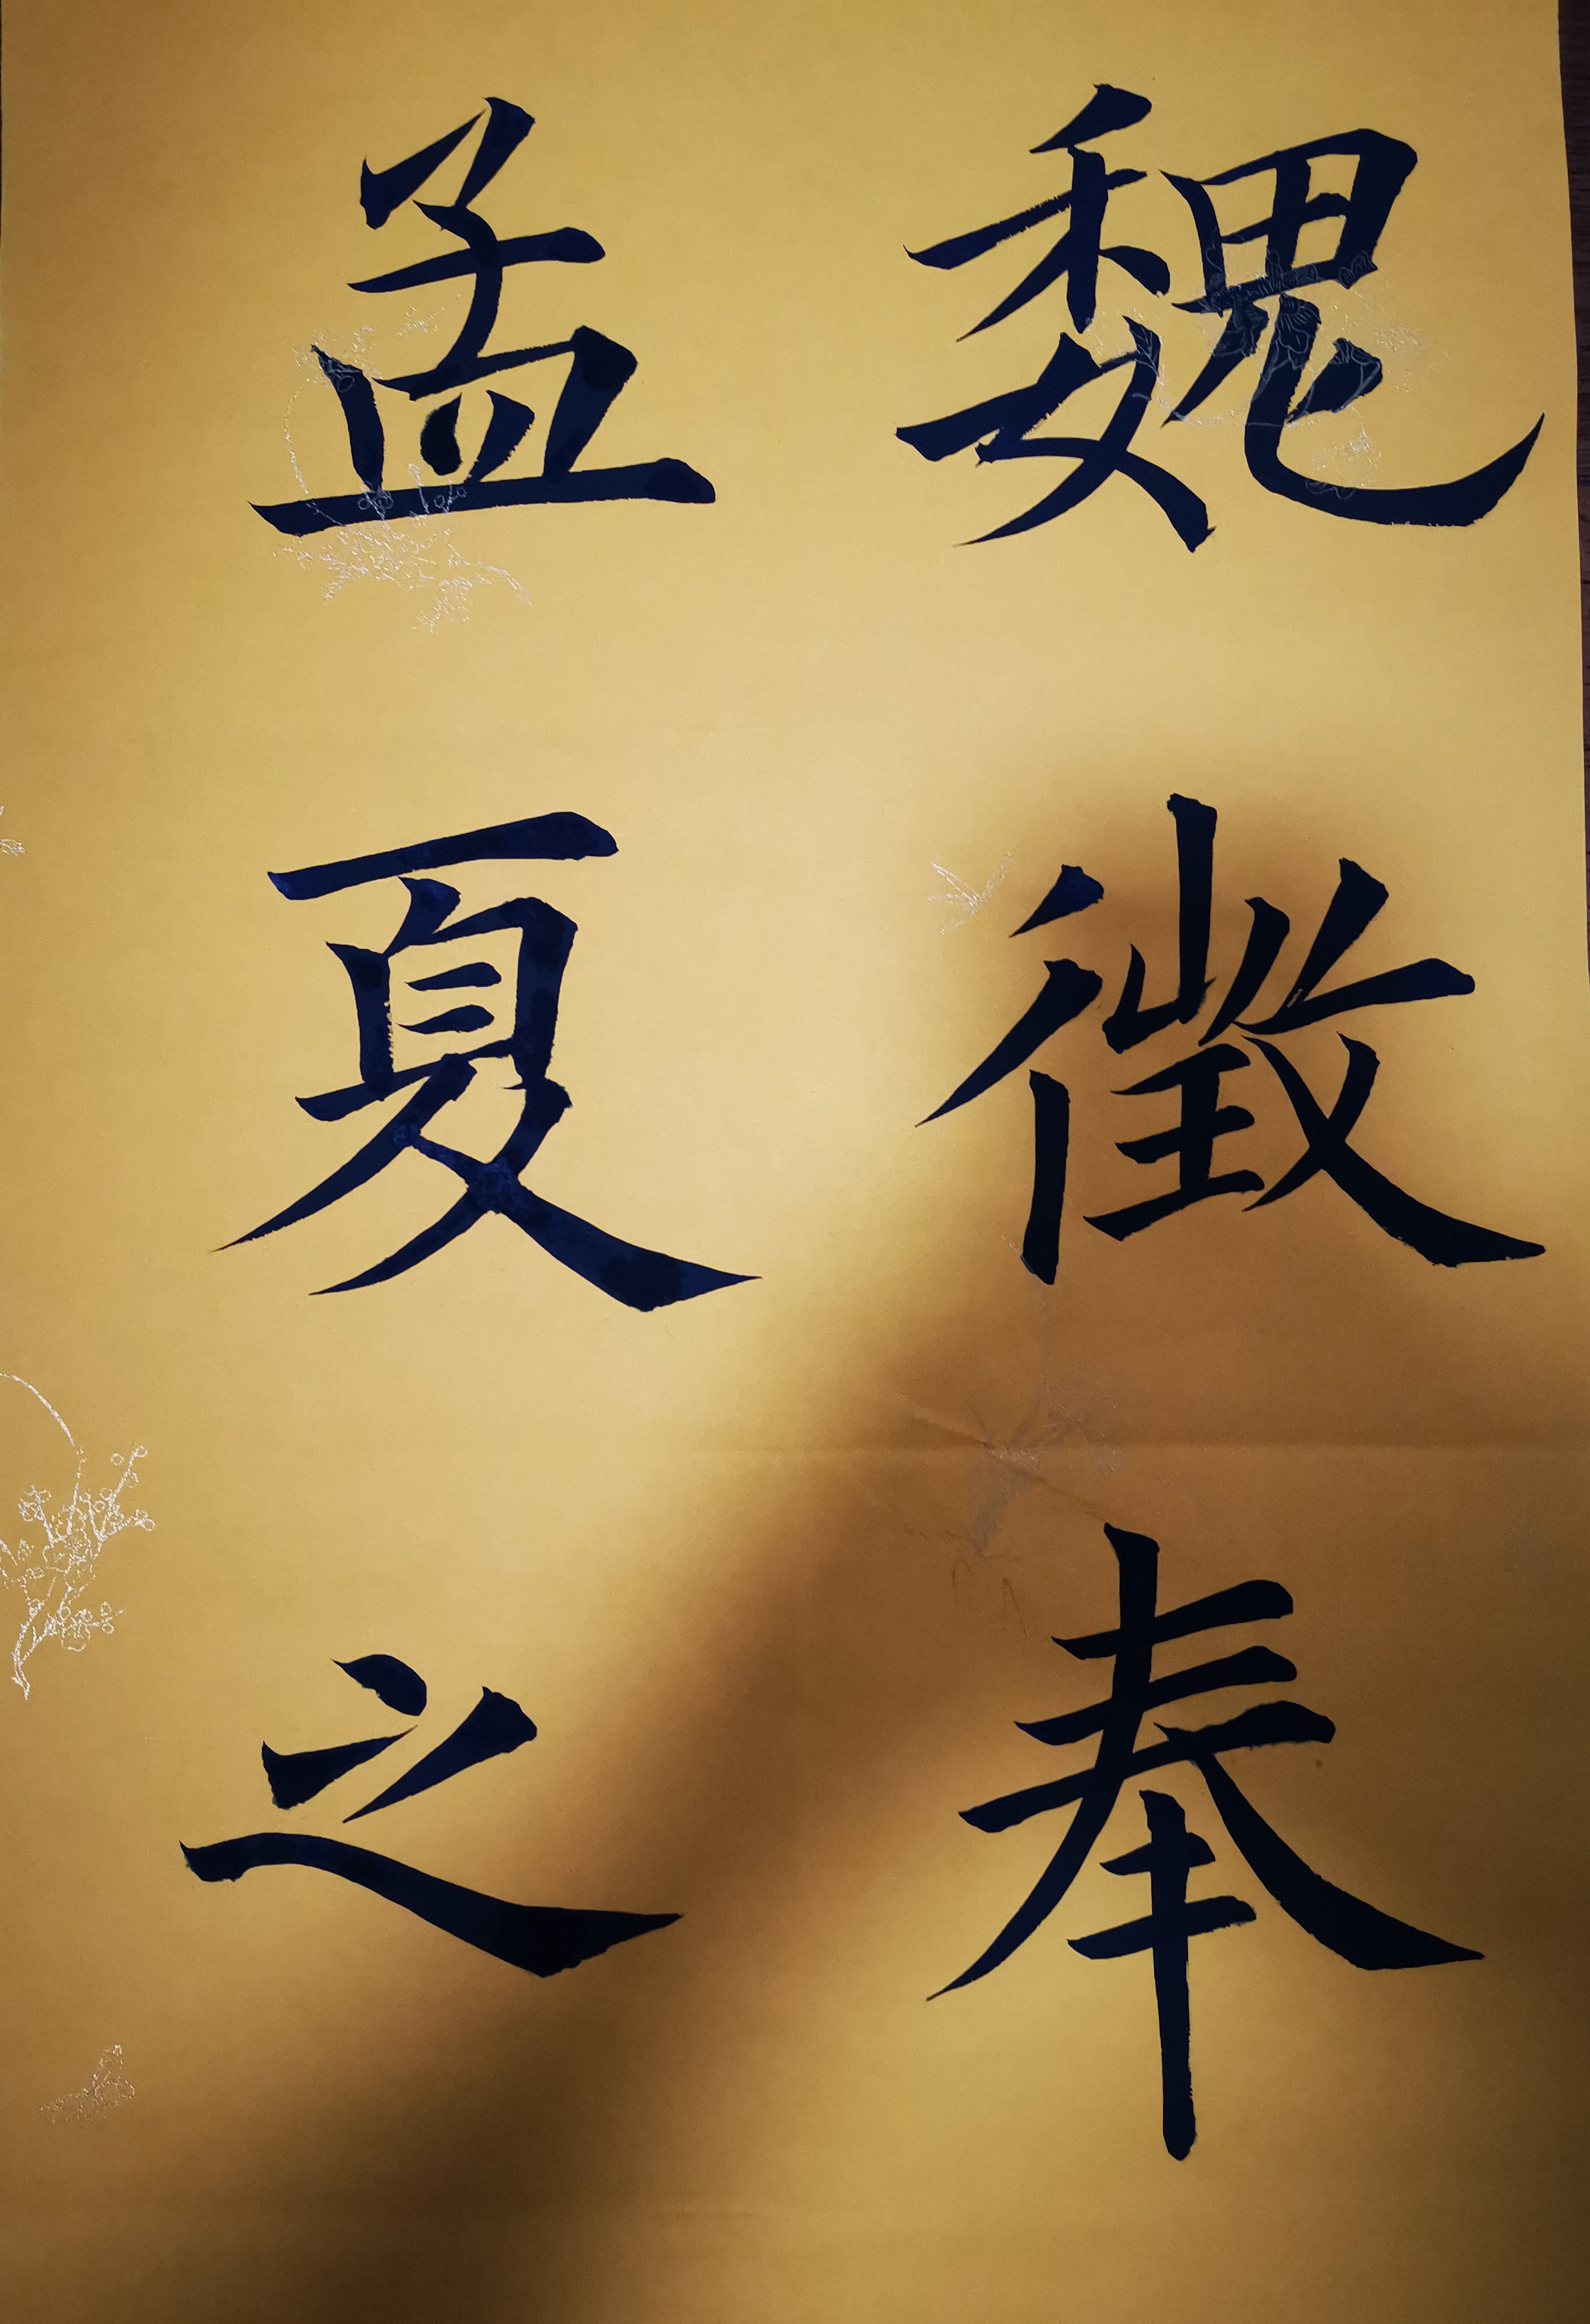 魏徵奉
孟夏之